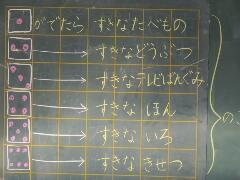 がでたら すきなたべもの
→ すきなどうぶつ
→ すきなテレビばんぐみ
→ すきな ほん
→ すきな いろ
→ すきな きせつ
の